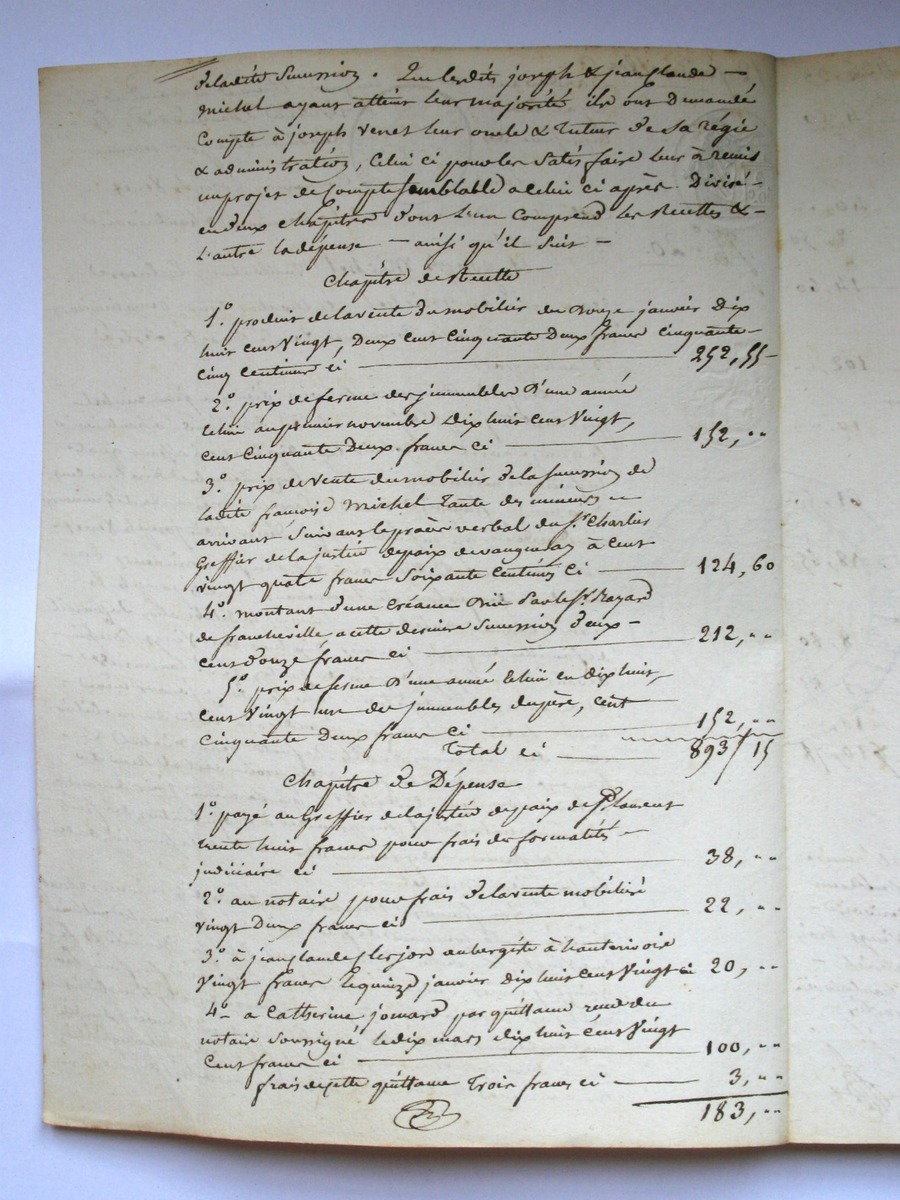 de ladite succession. Que lesdits joseph & jean Claude —
michel ayant atteint leur majorité ils ont demandé
Compte à joseph Venet leur oncle & tuteur de sa régie
& administration, Celui ci pour les satisfaire leur à remis
un projet de Compte semblable a celui ci après Divisé -
en deux chapitres dont l'un Comprend les Recettes & -
L'autre la dépense — ainsi qu'il suit —
Chapitre de Recette
1.° produit de la vente du mobilier du Douze janvier Dix
huit cent Vingt, Deux cent Cinquante Deux francs Cinquante -
Cinq Centimes ci — 252, 55
2.° prix de ferme des immeubles d'une année
échue au premier novembre Dix huit cent Vingt,
cent Cinquante Deux francs Ci — 152, ..
3.° prix de Vente du mobilier de la succession de
ladite françoise michel tante des mineurs —
arrivant suivant le procès verbal du S.r Charlus
Greffier de la justice de paix de vaugneray à Cent
vingt quatre francs Soixante Centimes Ci — 124, 60
4.° montant d'une Créance Due par le S.r Rayard
de francheville a cette derniere succession deux -
cent douze francs ci — 212, ..
5.° prix de ferme d'une année échue en dix huit
cent Vingt une des immeubles du père, cent
cinquante Deux francs Ci — 152, ..
Total ci — 893, 15
Chapitre de Dépense
1.° payé au Greffier de la justice de paix de S.t Laurent
trente huit francs pour frais de formalités —
judiciaire ci — 38, ..
2.° au notaire pour frais de la vente mobilière
vingt Deux francs ci — 22, ..
3.° à jean Claude aubergiste à hauterivoire
Vingt francs le quinze janvier dix huit cent Vingt ci 20, ..
4.° a Catherine jomard par quittance reçue du
notaire soussigné le dix mars dix huit cent Vingt
Cent francs ci — 100, ..
frais de cette quittance Trois francs ci — 3, ..
183, ..